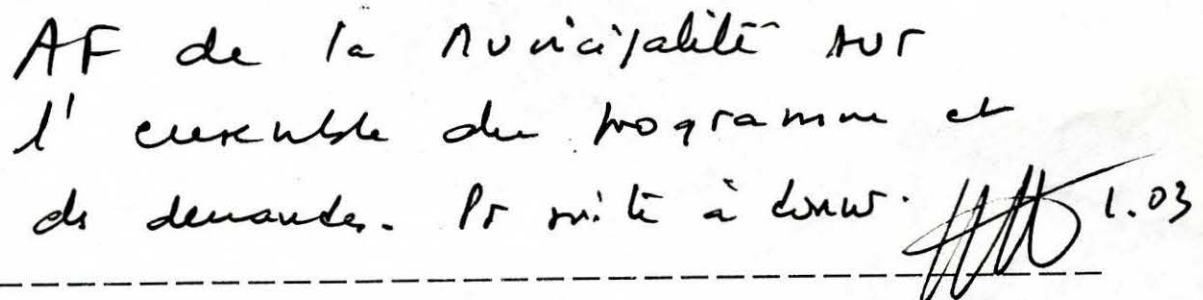 AF de la Municipalité sur
l'ensemble du programme et
des demandes. Pr suite à donner. 1.03